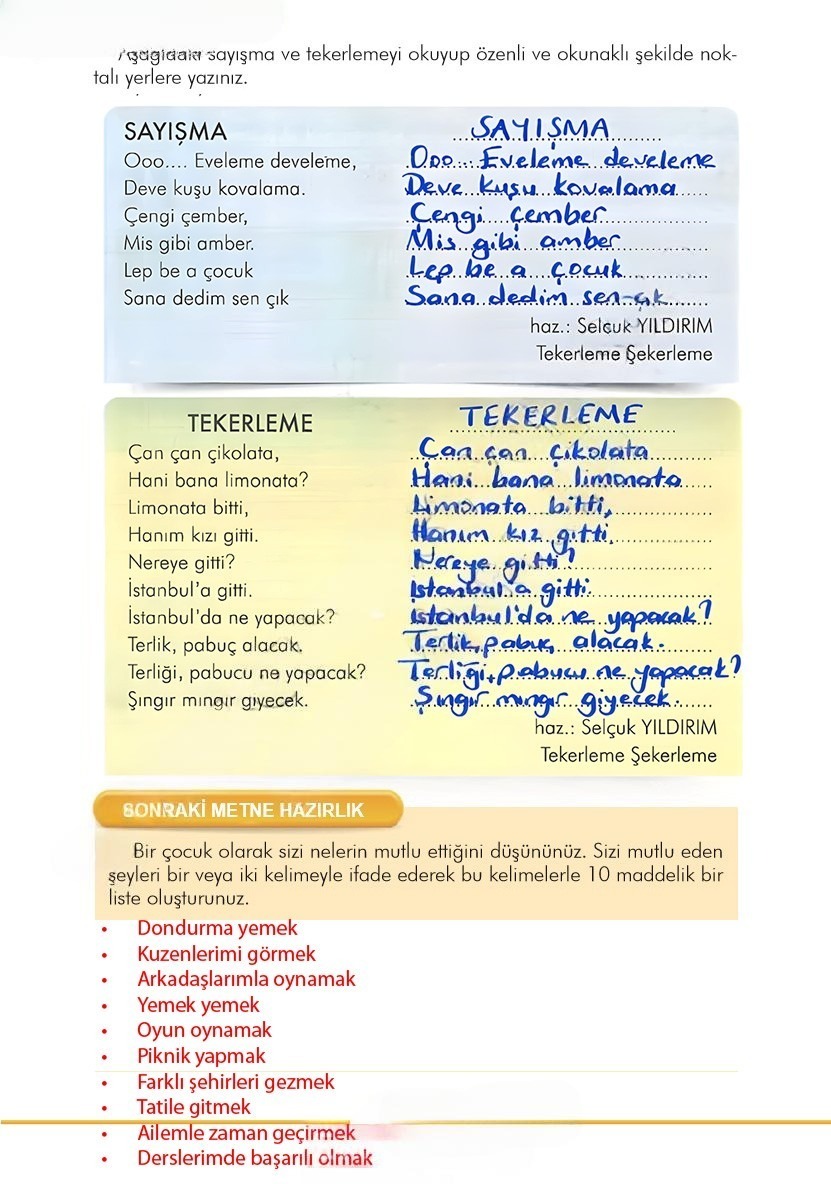 Aşağıdaki sayışma ve tekerlemeyi okuyup özenli ve okunaklı şekilde nok-
talı yerlere yazınız.
SAYIŞMA
Ooo.... Eveleme develeme,
Deve kuşu kovalama.
Çengi çember,
Mis gibi amber.
Lep be a çocuk
Sana dedim sen çık
SAYIŞMA
Ooo.... Eveleme develeme
Deve kuşu kovalama
Çengi çember
Mis gibi amber
Lep be a çocuk
Sana dedim sen çık
haz.: Selçuk YILDIRIM
Tekerleme Şekerleme
TEKERLEME
Çan çan çikolata,
Hani bana limonata?
Limonata bitti,
Hanım kızı gitti.
Nereye gitti?
İstanbul'a gitti.
İstanbul'da ne yapacak?
Terlik, pabuç alacak.
Terliği, pabucu ne yapacak?
Şıngır mıngır giyecek.
TEKERLEME
Çan çan çikolata
Hani bana limonata
Limonata bitti,
Hanım kız gitti.
Nereye gitti?
İstanbul'a gitti.
İstanbul'da ne yapacak?
Terlik, pabuç alacak.
Terliği, pabucu ne yapacak?
Şıngır mıngır giyecek.
haz.: Selçuk YILDIRIM
Tekerleme Şekerleme
SONRAKİ METNE HAZIRLIK
Bir çocuk olarak sizi nelerin mutlu ettiğini düşününüz. Sizi mutlu eden
şeyleri bir veya iki kelimeyle ifade ederek bu kelimelerle 10 maddelik bir
liste oluşturunuz.
• Dondurma yemek
• Kuzenlerimi görmek
• Arkadaşlarımla oynamak
• Yemek yemek
• Oyun oynamak
• Piknik yapmak
• Farklı şehirleri gezmek
• Tatile gitmek
• Ailemle zaman geçirmek
• Derslerimde başarılı olmak